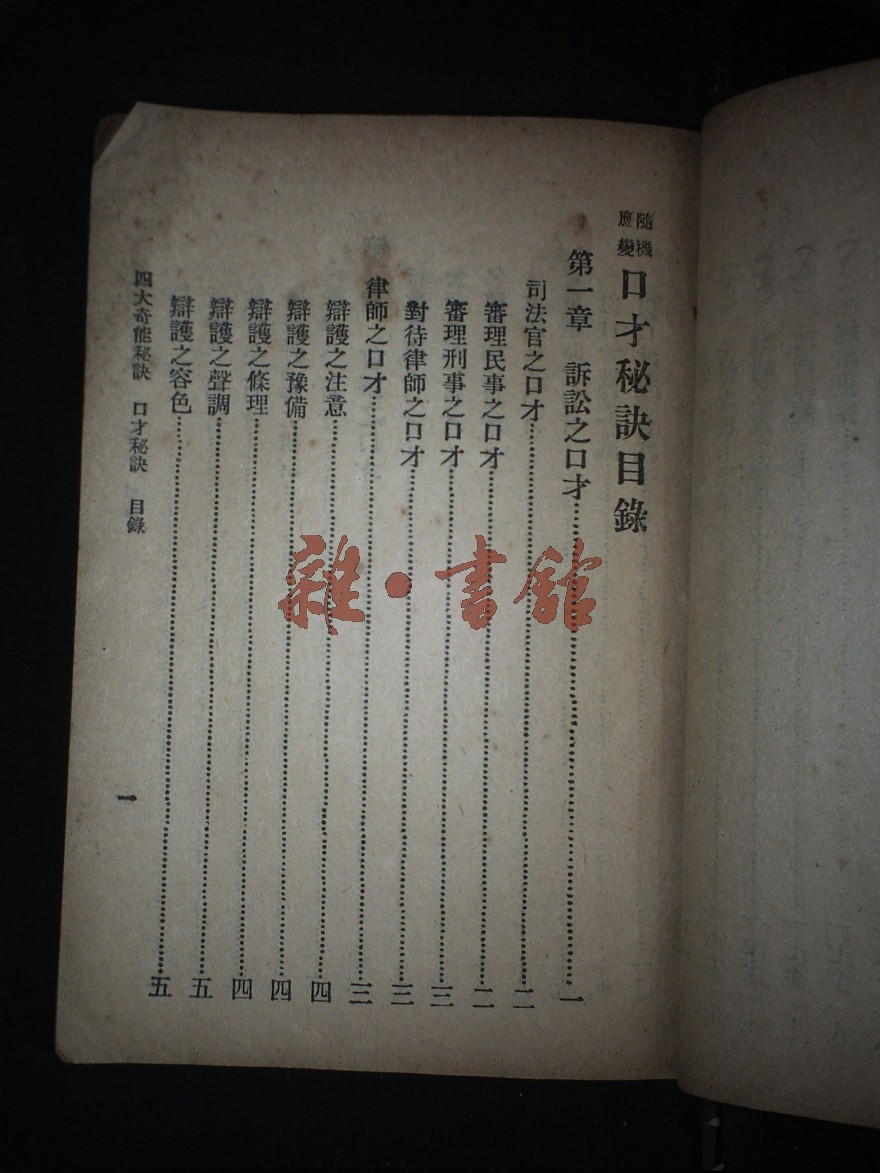 隨機應變 口才秘訣目錄
第一章 訴訟之口才…………一
司法官之口才…………二
審理民事之口才…………二
審理刑事之口才…………三
對待律師之口才…………三
律師之口才…………三
辯護之注意…………四
辯護之豫備…………四
辯護之條理…………四
辯護之聲調…………五
辯護之容色…………五
四大奇能秘訣 口才秘訣 目錄 一
雜·書舘